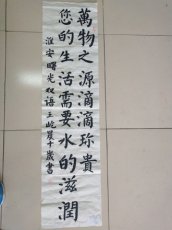 萬物之源滴滴珍貴
您的生活需要水的滋潤
淮安曙光双语王屹晨十歲書